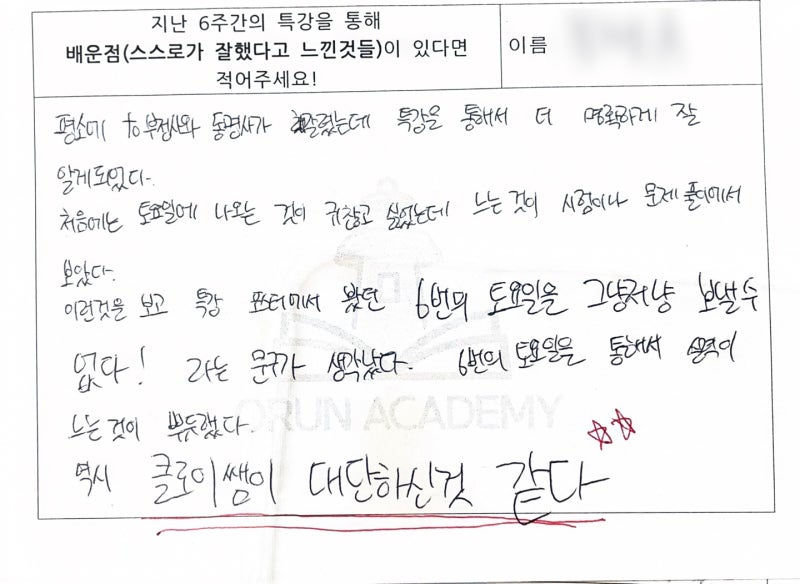 지난 6주간의 특강을 통해
배운점(스스로가 잘했다고 느낀것들)이 있다면
적어주세요!
이름
평소에 to부정사와 동명사가 헷갈렸는데 특강을 통해서 더 명확하게 잘
알게되었다.
처음에는 토요일에 나오는 것이 귀찮고 싫었는데 느는 것이 시험이나 문제 풀이에서
보았다.
이런것을 보고 특강 포터에서 봤던 6번의 토요일을 그냥저냥 보낼 수
없다! 라는 문구가 생각났다. 6번의 토요일을 통해서 실력이
느는 것이 뿌듯했다.
역시 클로이쌤이 대단하신것 같다
ORUN ACADEMY